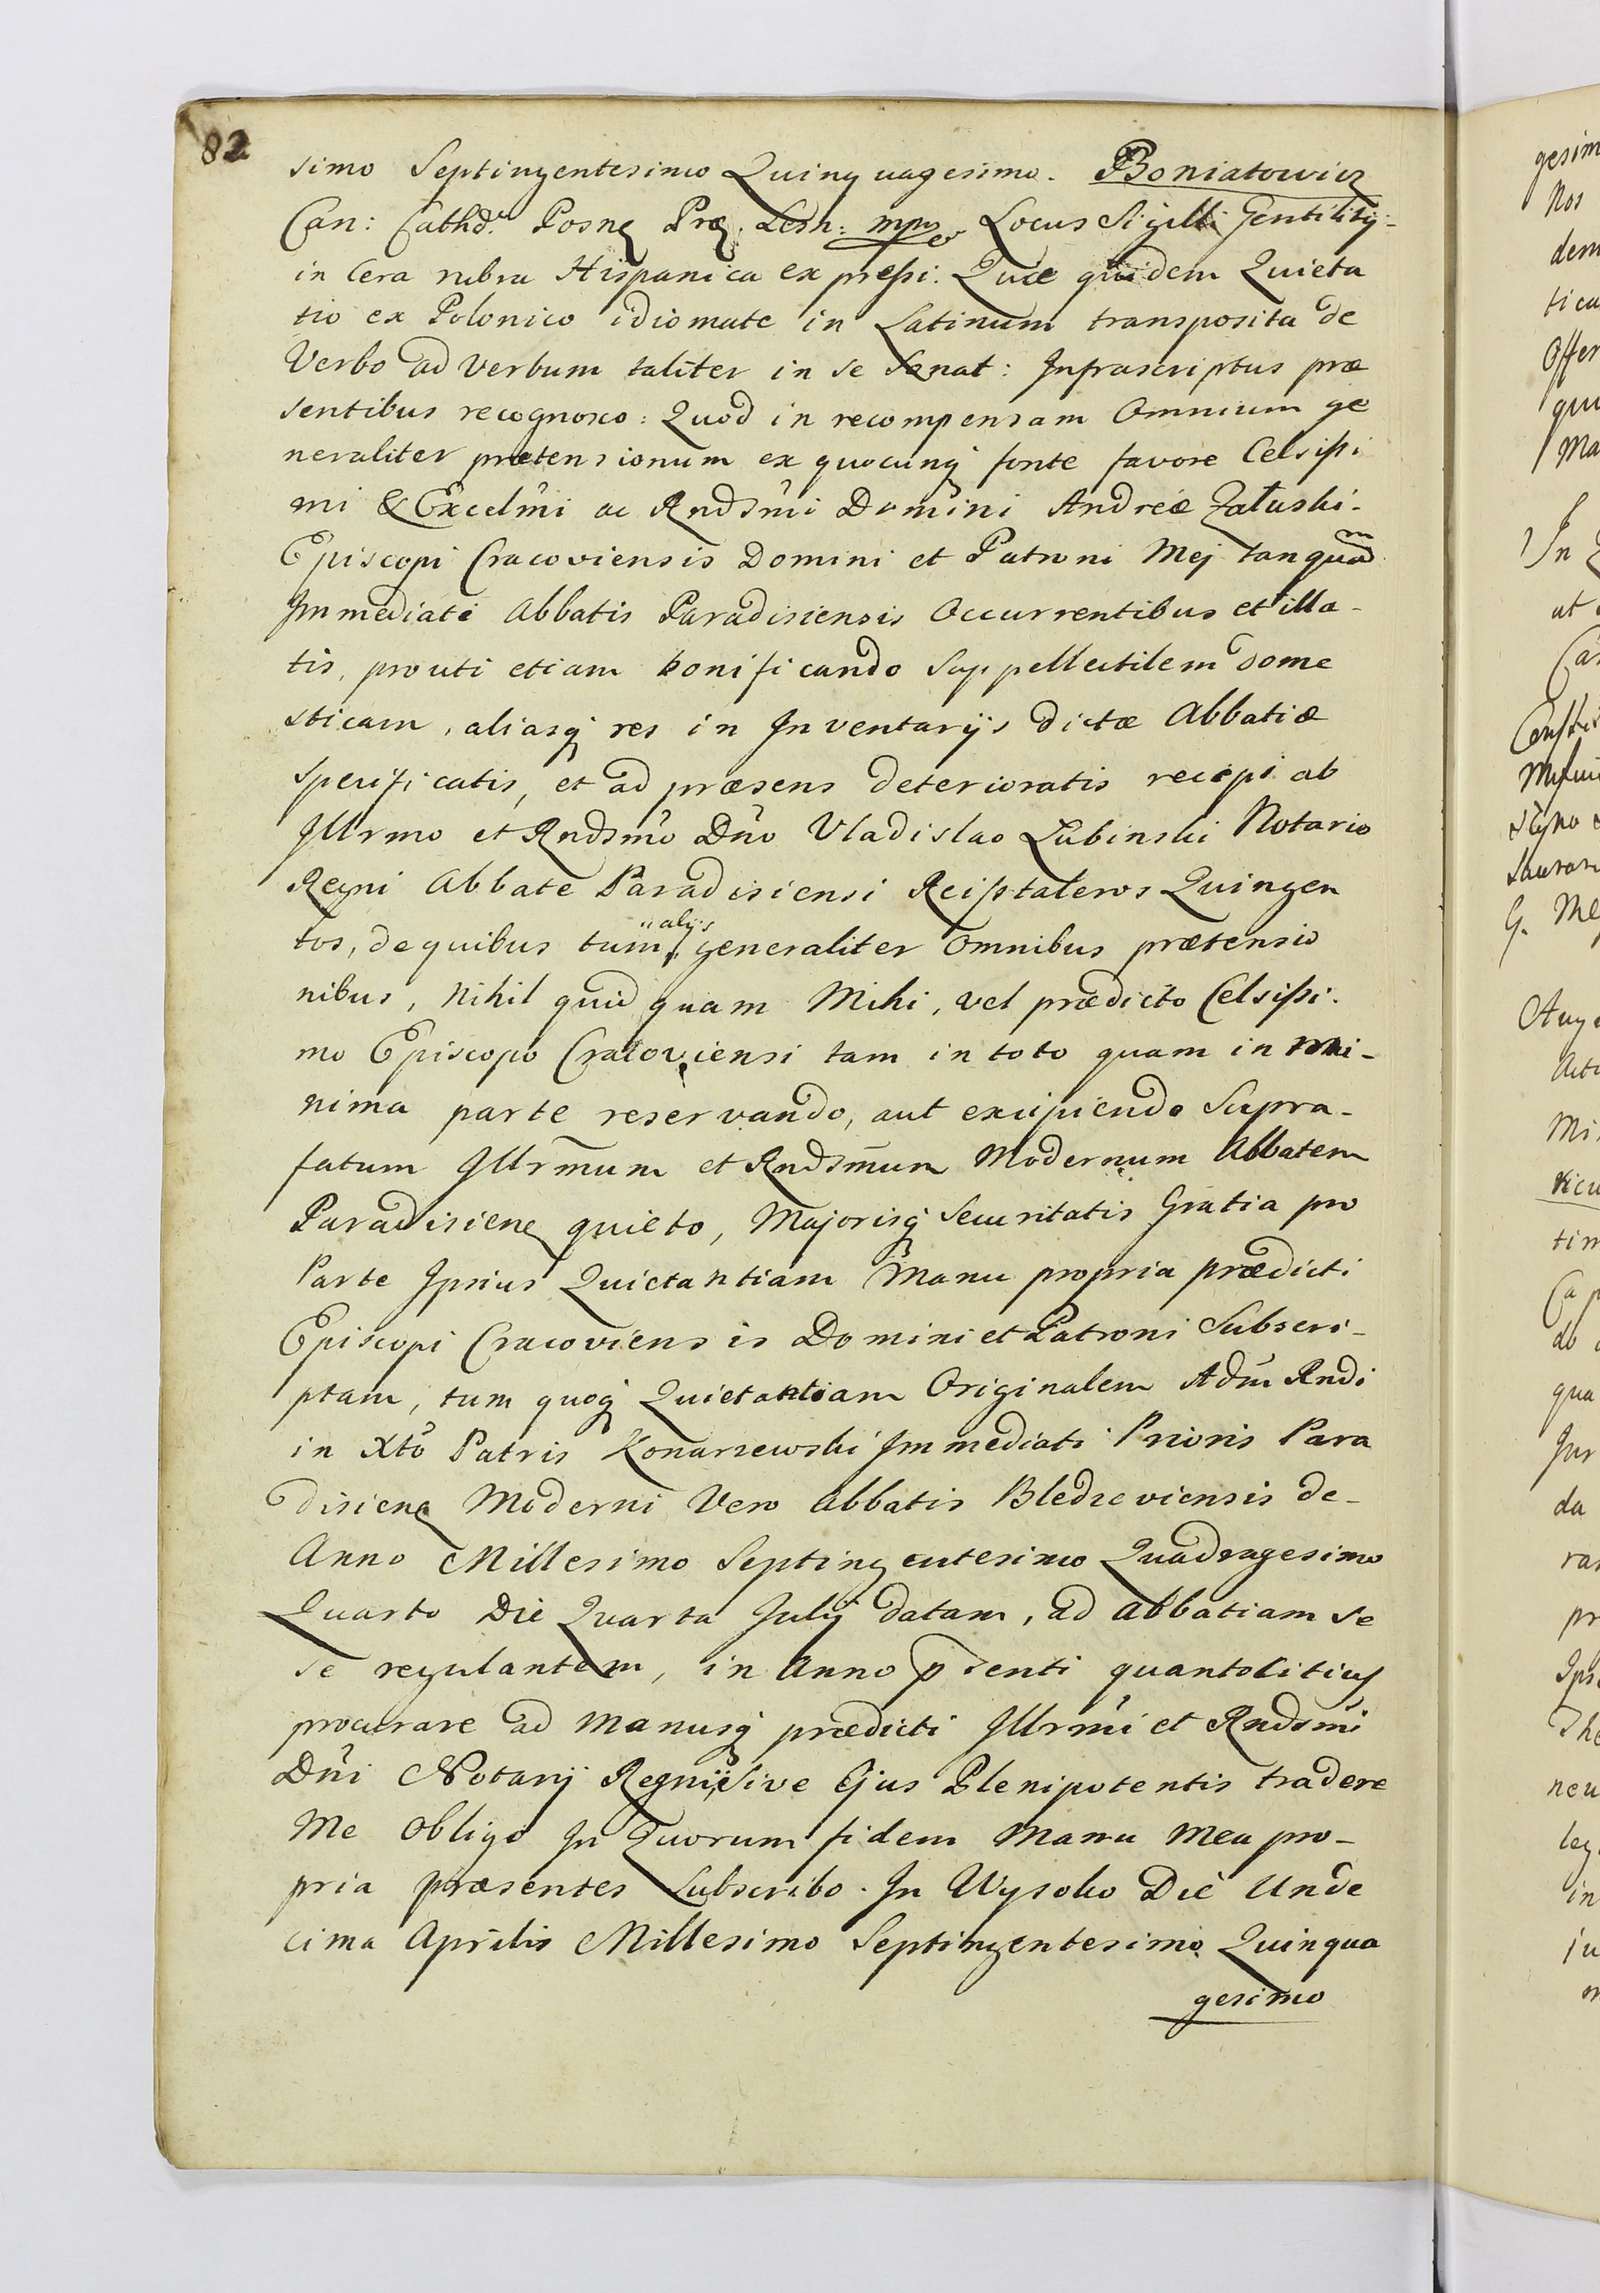 82
simo Septingentesimo Quinquagesimo. Boniatowicz
Can: Cathd: Posnę Prę. Lesn: mpp Locus Sigilli Gentilitij
in Cera rubra Hispanica expreßi. Quæ quidem Quieta
tio ex Polonico idiomate in Latinum transposita de
Verbo ad verbum taliter in se sonat: Infrascriptus præ
sentibus recognosco: Quod in recompensam Omnium ge
neraliter prætensionum ex quocunq fonte favore Celsißi
mi & Excelmi ac Rndsmi Domini Andreæ Załuski
Episcopi Cracoviensis Domini et Patroni Mej tanquam
Immediati Abbatis Paradisiensis Occurrentibus et illa-
tis, prouti etiam bonificando Suppellectilem dome
sticam, aliasq res in Inventarijs dictæ Abbatiæ
specificatis, et ad præsens deterioratis recepi ab
Illrmo et Rndsmo Dno Vladislao Łubinski Notario
Regni Abbate Paradisiensi Reichstaleros Quingen
tos, de quibus tum alijs generaliter Omnibus prætensio
nibus, Nihil quid quam Mihi, vel prædicto Celsißi
mo Episcopo Cracoviensi tam in toto quam in mi-
nima parte reservando, aut excipiendo Supra-
fatum Illrmum et Rndsmum Modernum Abbatem
Paradisienę quieto, Majorisq Securitatis Gratia pro
Parte Ipsius Quietantiam Manu propria prædicti
Episcopi Cracoviensis Domini et Patroni Subscri-
ptam, tum quoq Quietantiam Originalem Adm Rndi
in Xto Patris Konarzewski Immediati Prioris Para
disienę Moderni Vero Abbatis Bledzeviensis de-
Anno Millesimo Septingentesimo Quadragesimo
Quarto Die Quarta Julij datam, ad Abbatiam se
se regulantem, in Anno psenti quantocitius
procurare ad manusq prædicti Illrmi et Rndsmi
Dni Notarij Regni, Sive Ejus Plenipotentis tradere
Me Obligo In Quorum fidem Manu Mea pro-
pria præsentes Subscribo. In Wysoko Die Unde
cima Aprilis Millesimo Septingentesimo Quinqua
gesimo